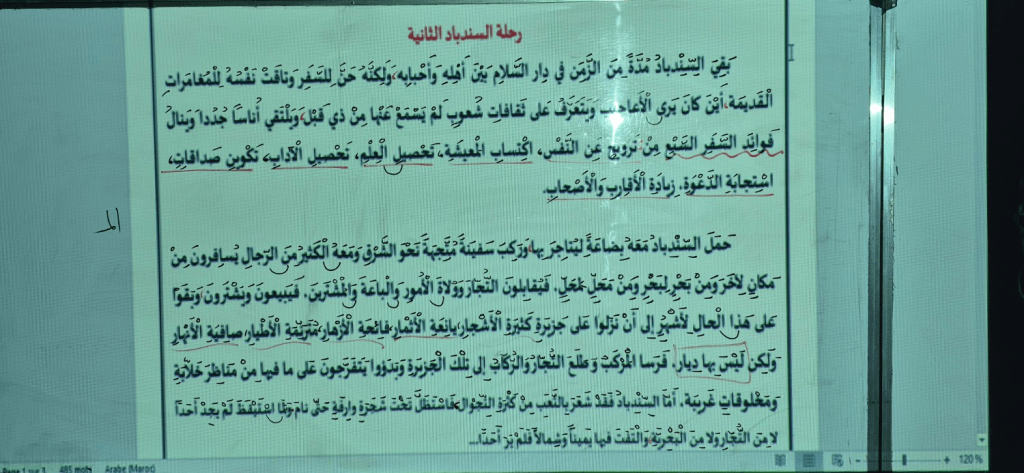 رحلة السندباد الثانية
بَقِيَ السِّنْدِبادُ مُدَّةً مِنَ الزَّمَنِ في دارِ السَّلامِ بَيْنَ أَهْلِهِ وَأَحْبابِهِ، وَلَكِنَّهُ حَنَّ لِلسَّفَرِ وَتاقَتْ نَفْسُهُ لِلْمُغامَراتِ
الْقَديمَةِ، أَيْنَ كانَ يَرى الْأَعاجيبَ وَيَتَعَرَّفُ عَلى ثَقافاتِ شُعوبٍ لَمْ يَسْمَعْ عَنْها مِنْ ذي قَبْلُ، وَيَلْتَقي أُناسًا جُدُدا وَيَنالُ
فَوائِدَ السَّفَرِ السَّبْعِ مِنْ تَرْويحٍ عَنِ النَّفْسِ، اكْتِسابِ الْمَعيشَةِ، تَحْصيلِ الْعِلْمِ، تَحْصيلِ الْآدابِ، تَكْوينِ صَداقاتٍ،
اسْتِجابَةِ الدَّعْوَةِ، زِيارَةِ الْأَقارِبِ وَالْأَصْحابِ.
الـ
حَمَلَ السِّنْدِبادُ مَعَهُ بِضاعَةً لِيُتاجِرَ بِها وَرَكِبَ سَفينَةً مُتَّجِهَةً نَحْوَ الشَّرْقِ وَمَعَهُ الْكَثيرُ مِنَ الرِّجالِ يُسافِرونَ مِنْ
مَكانٍ لِآخَرَ وَمِنْ بَحْرٍ لِبَحْرٍ وَمِنْ مَحَلٍّ لِمَحَلٍّ. فَيُقابِلونَ التُّجّارَ وَوُلاةَ الْأُمورِ وَالْباعَةَ وَالْمُشْتَرينَ. فَيَبيعونَ وَيَشْتَرونَ وَبَقَوْا
عَلى هَذا الْحالِ لِأَشْهُرٍ إِلى أَنْ نَزَلوا عَلى جَزيرَةٍ كَثيرَةِ الْأَشْجارِ، يانِعَةِ الْأَثْمارِ، فائِحَةِ الْأَزْهارِ، مُتَرَنِّمَةِ الْأَطْيارِ، صافِيَةِ الْأَنْهارِ
وَلَكِنْ لَيْسَ بِها دِيار. فَرَسا الْمَرْكَبُ وَطَلَعَ التُّجّارُ وَالرُّكّابُ إِلى تِلْكَ الْجَزيرَةِ وَبَدَؤوا يَتَفَرَّجونَ عَلى ما فيها مِنْ مَناظِرَ خَلّابَةٍ
وَمَخْلوقاتٍ غَريبَةٍ. أَمّا السِّنْدِبادُ فَقَدْ شَعَرَ بِالتَّعَبِ مِنْ كَثْرَةِ التَّجْوالِ فَاسْتَظَلَّ تَحْتَ شَجَرَةٍ وارِفَةٍ حَتّى نامَ وَلَمّا اسْتَيْقَظَ لَمْ يَجِدْ أَحَدًا
لا مِنَ التُّجّارِ وَلا مِنَ الْبَحْرِيَّةِ وَالْتَفَتَ فيها يَمينًا وَشِمالًا فَلَمْ يَرَ أَحَدًا...
Page 1 sur 3 485 mots Arabe (Maroc) 120 %